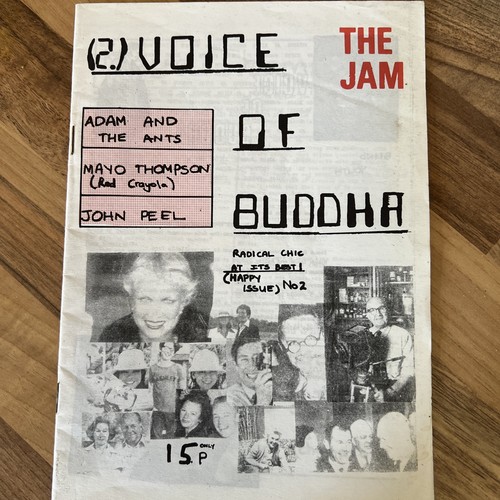 (2.) VOICE
OF
BUDDHA
THE
JAM
ADAM AND
THE ANTS
MAYO THOMPSON
(Red Crayola)
JOHN PEEL
RADICAL CHIC
AT ITS BEST!
(HAPPY
ISSUE) No 2
15P ONLY